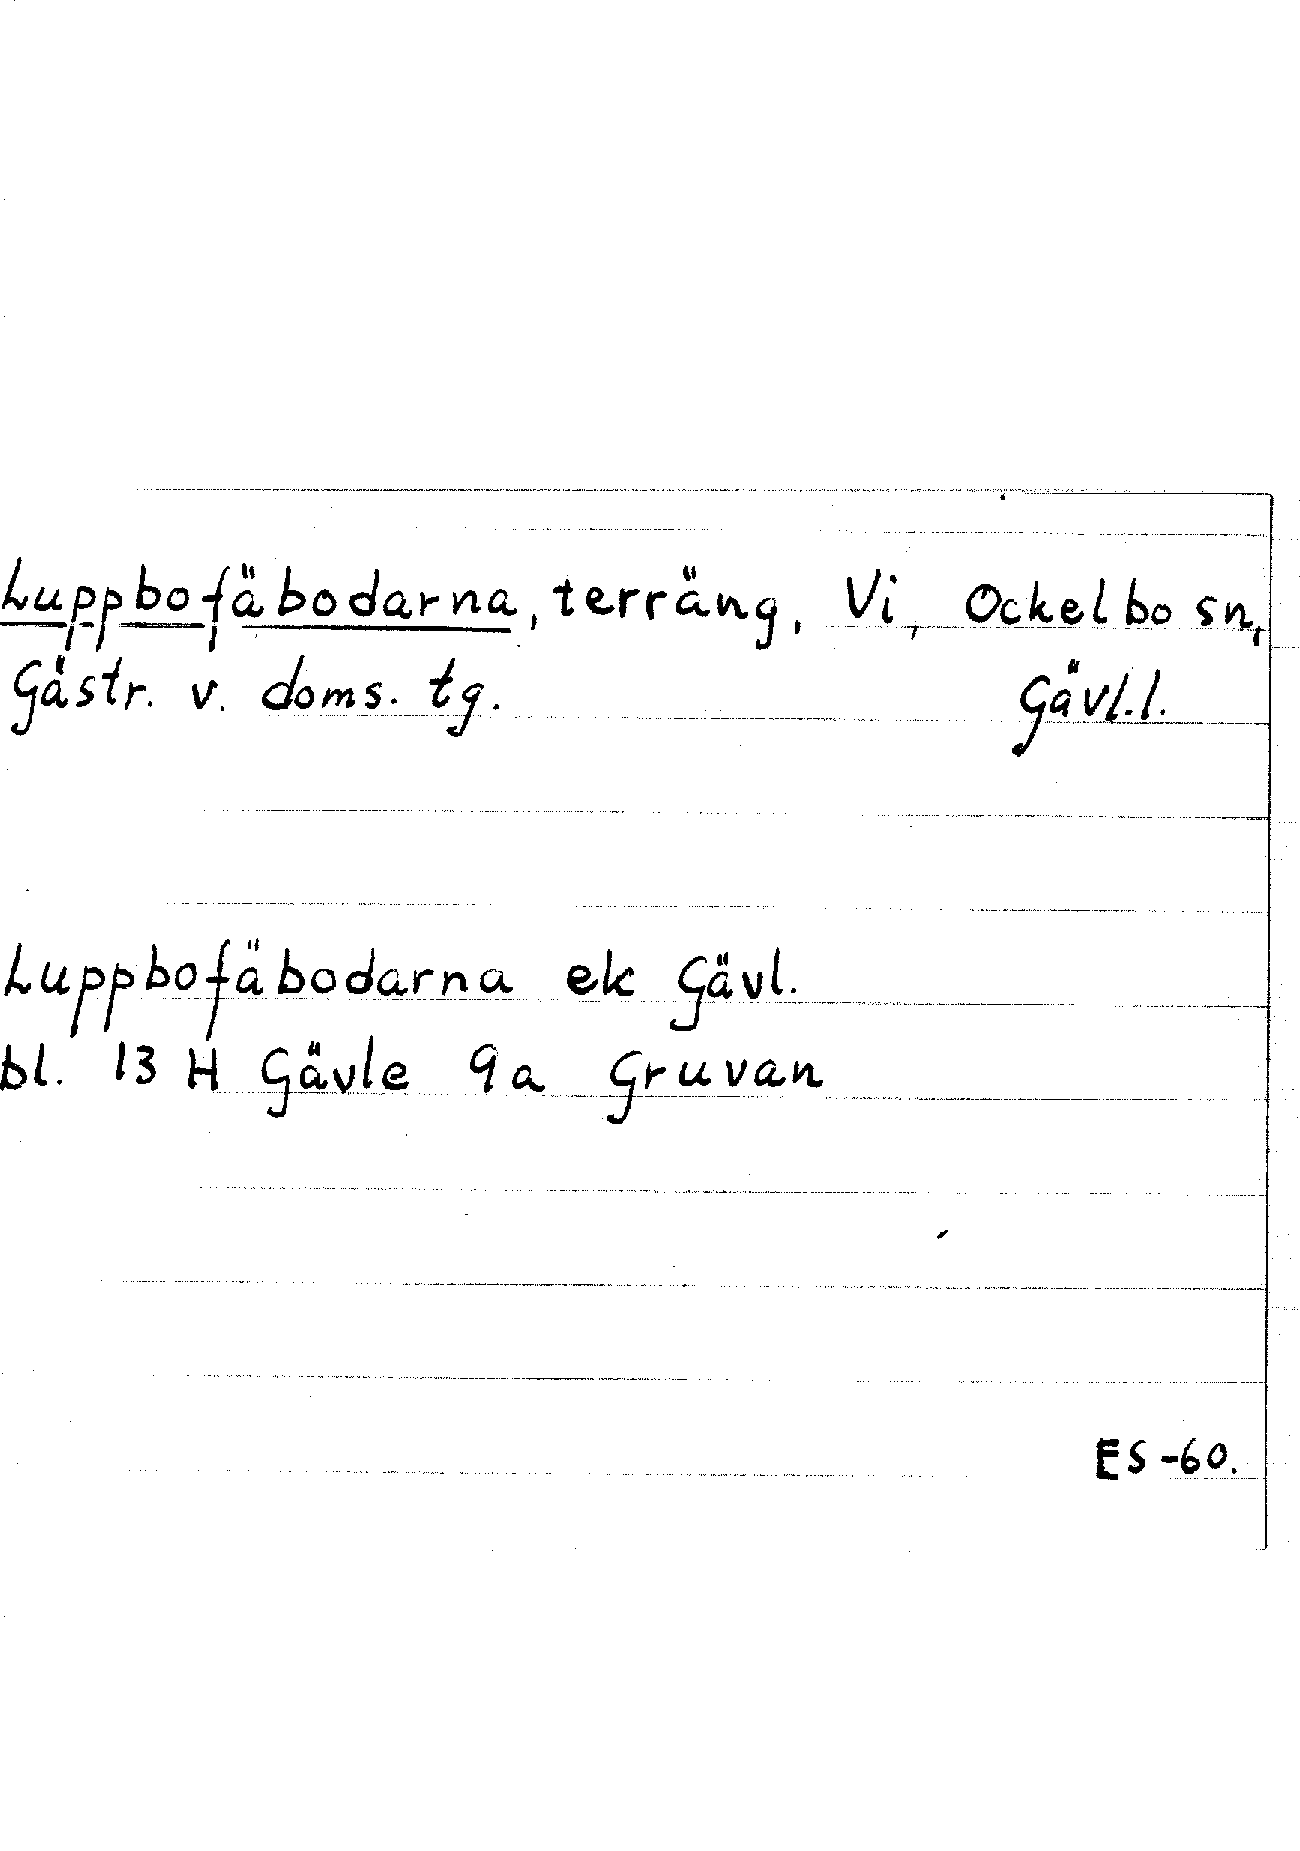 Luppbofäbodarna, terräng, Vi, Ockelbo sn,
Gästr. v. doms. tg. Gävl.l.
Luppbofäbodarna ek Gävl.
bl. 13 H Gävle 9a Gruvan
ES -60.